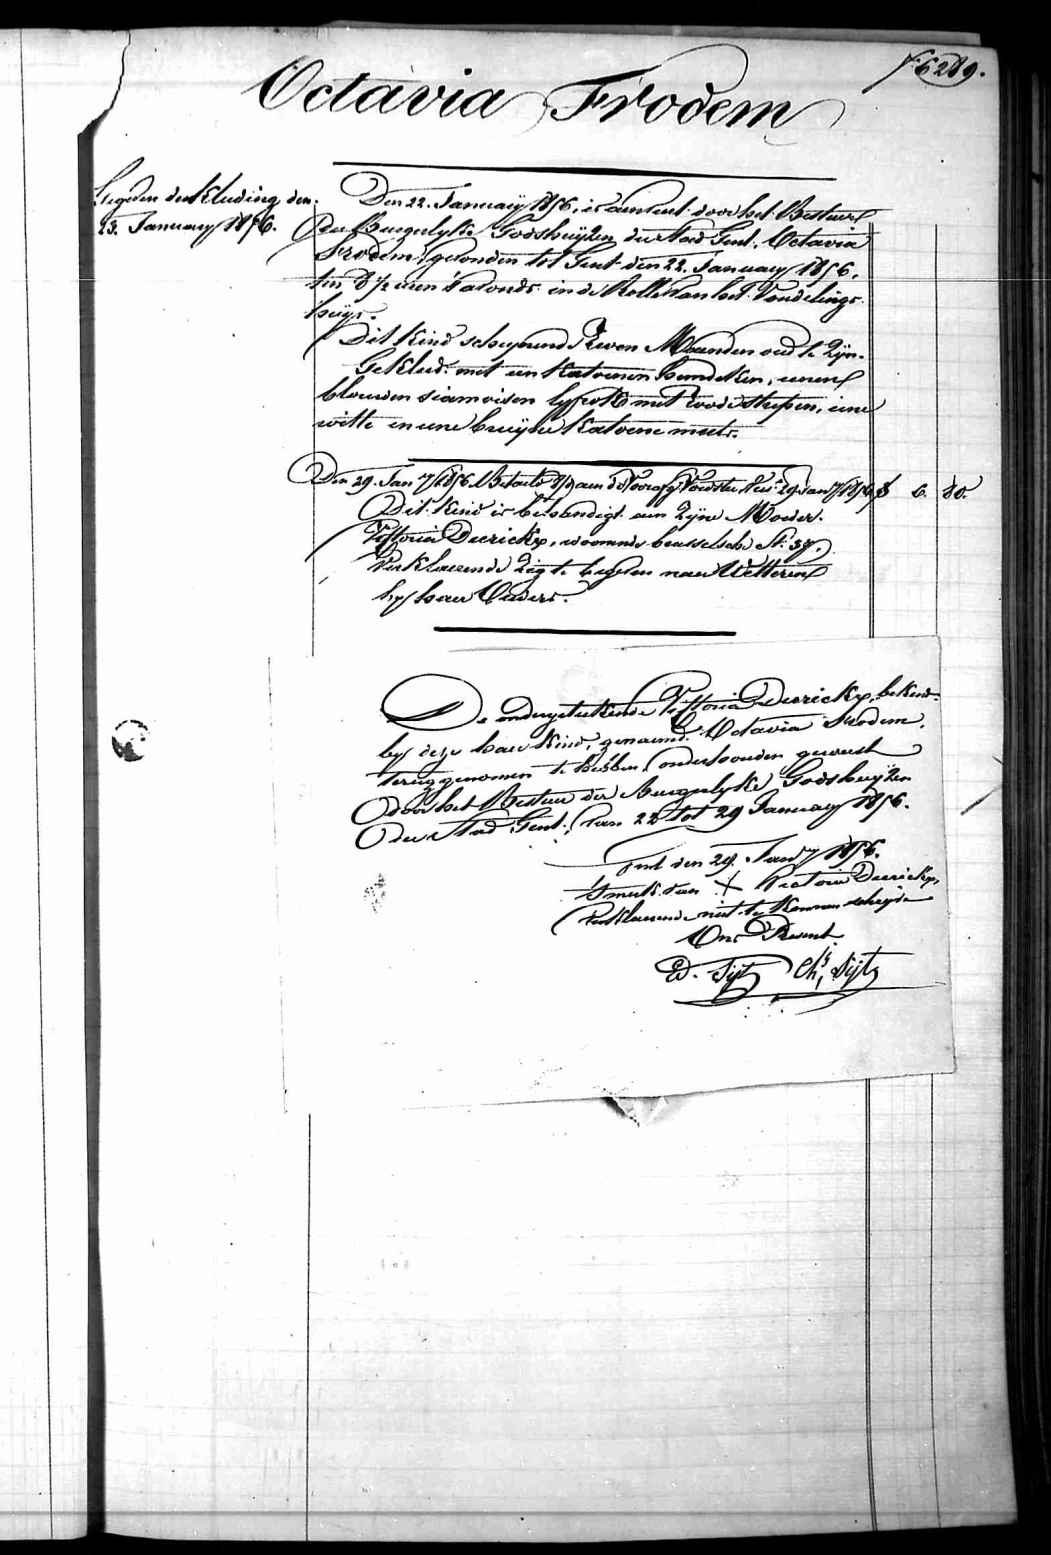 F. 6289.
Octavia Frodem
Gegeven der Kleeding den
23. January 1856.
Den 22. January 1856, is aenveerd door het Bestuur
Der Burgerlyke Godshuyzen der Stad Gent. Octavia
Frodem, gevonden tot Gent den 22. January 1856.
ten 8 1/2 uren s'avonds in de Rolle van het Vondelings
huys.
Dit Kind schynende Zeven Maenden oud te Zyn.
Gekleed met een Katoenen hemdeken, eenen
blauwen siamoisen lyfrok met roode strepen, eene
witte en eene bruyne Katoene muts.
Den 29. Jan.ry 1856 Betaeld aen de Voedster 29 Jan.ry 1856 f 6. 80.
Dit Kind is behandigt aen Zyne Moeder.
Vittoria Deerickx, woonende brusselsche St. 37.
Verklaerende Zig te begeven naer Wetteren
by haer Ouders.
De ondergeteekende Vittoria Deerickx, bekend
by deze haer Kind, genaemd Octavia Frodem,
terug genomen te hebben, onderhouden geweest
door het Bestuur der Burgerlyke Godshuyzen
der Stad Gent, van 22 tot 29 January 1856.
Gent den 29. Jan.ry 1856.
't merk van X Victoria Deerickx,
verklaerende niet te konnen schryven
Ons Present
Ed. Syt Ch.s Syts